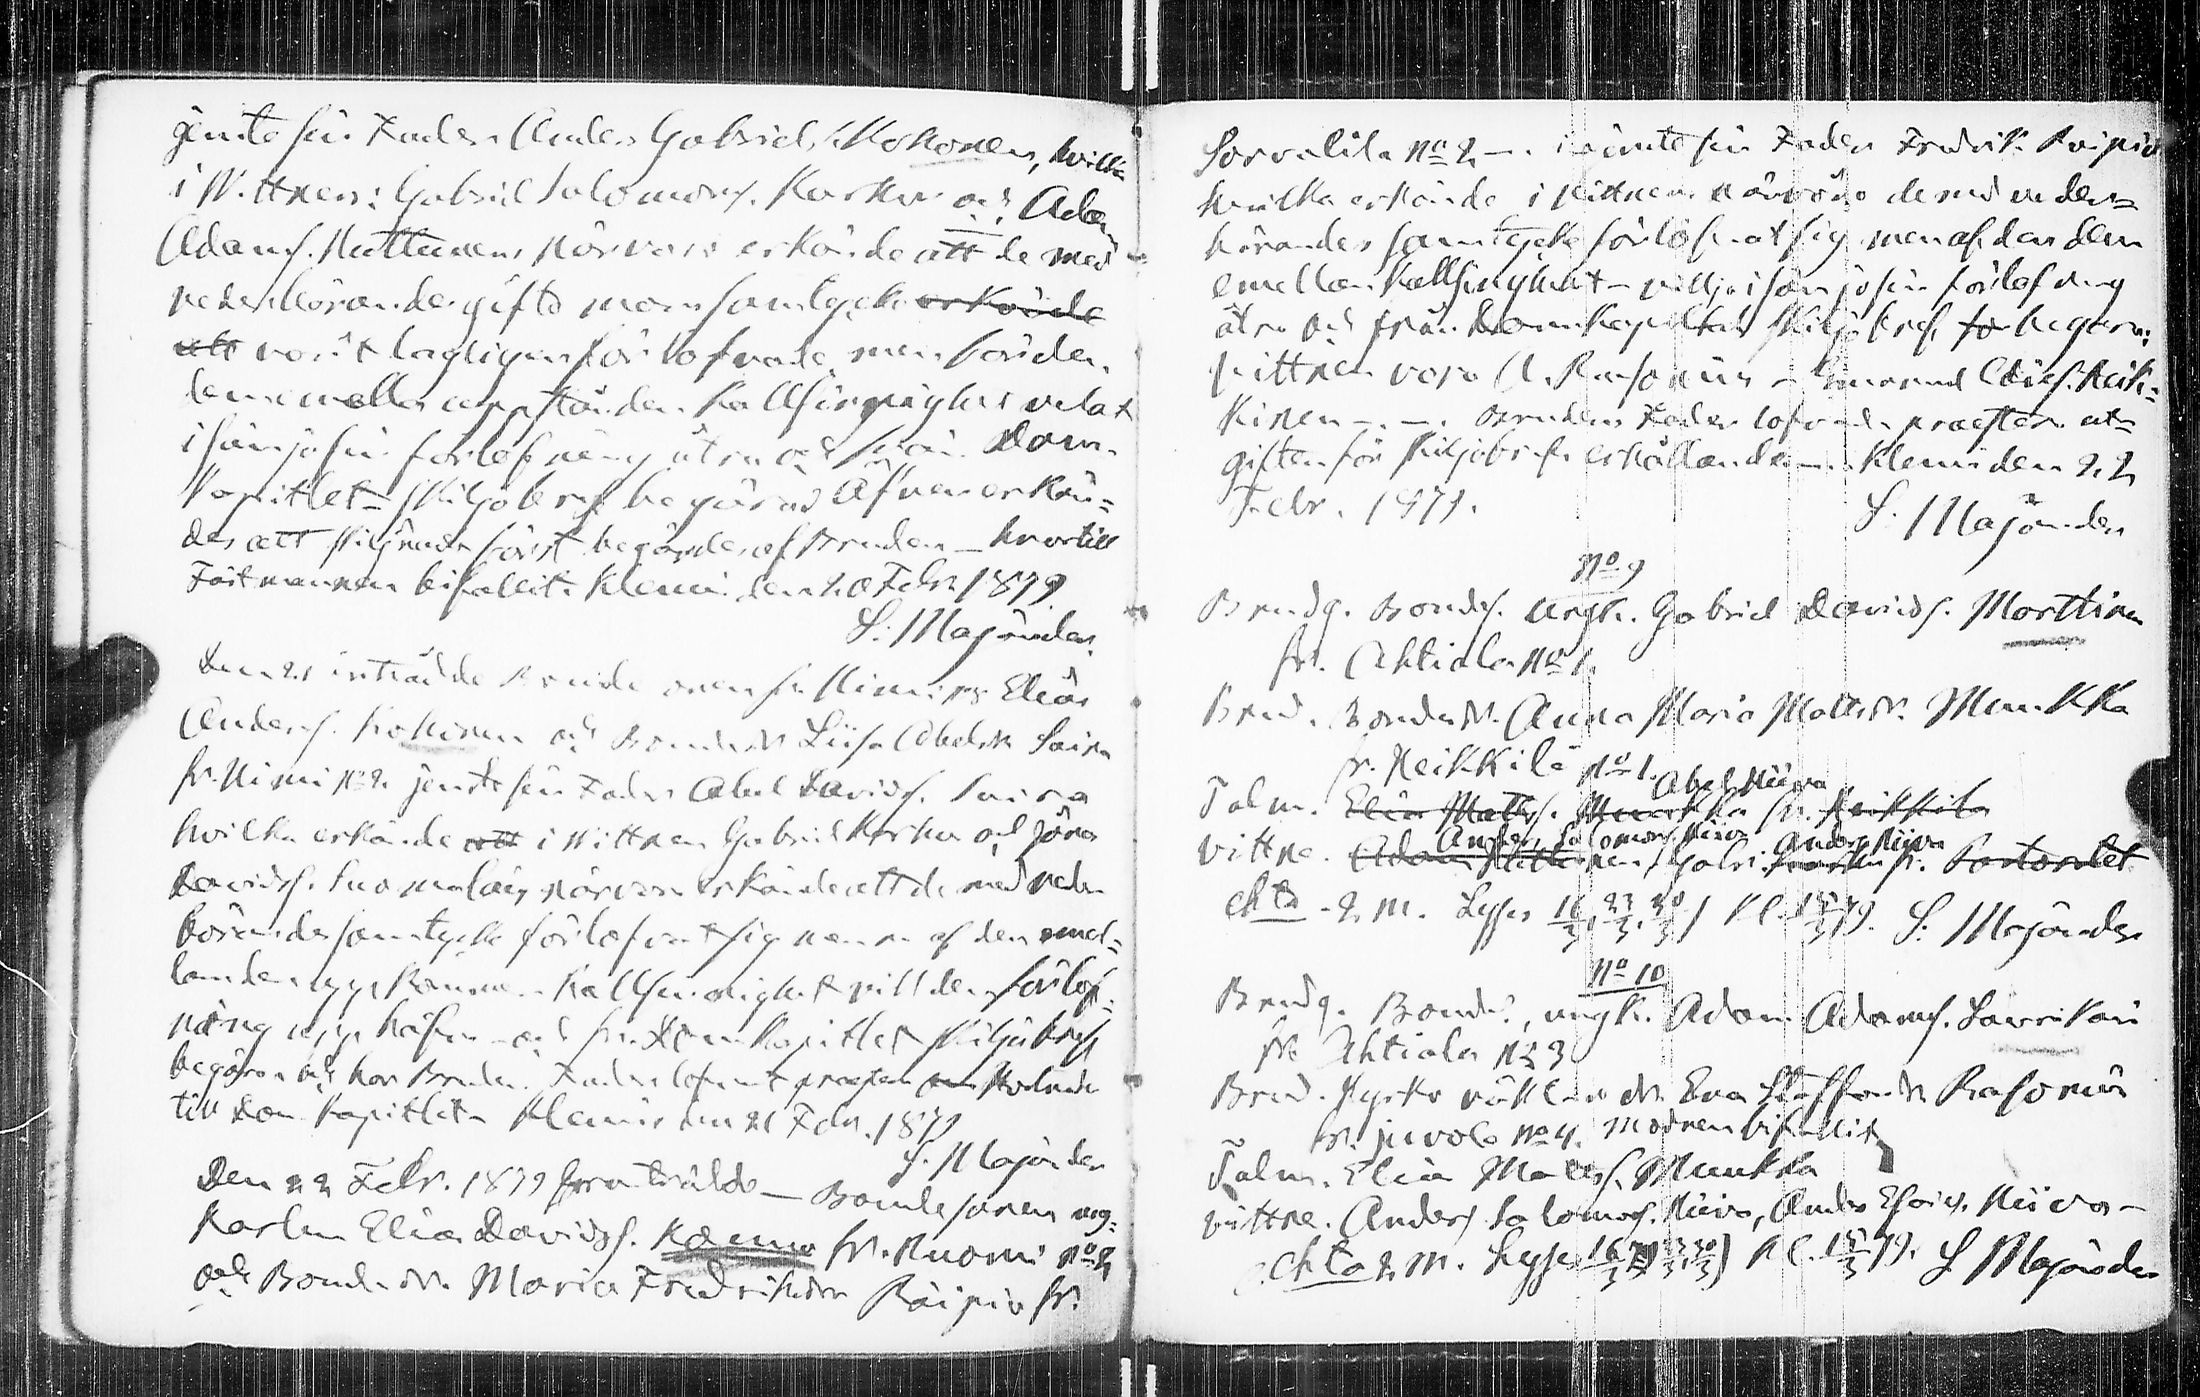 jemte sin Fader Anders Gabriels. Kokonen, hvilka
i Wittnens: Gabriel Salomons. Karhu och Adam
Adams. Huttunens närvaro erkände att de med
vederbörandes giftomans samtycke erkände
att varit lagligen förlofvade, men sedan
dem emellan uppstånden kallsinnighet velat
i sänja sin förlofning åtra och från Dom-
kapitlet skiljobref begära Äfven erkän-
des att skillnad först begärdes af Bruden – hvartill
Fästmannen bifallit. Klemis den 20 Febr. 1879.
S. Majander.
Den 21 inträdde Bondesonen fr. Nimi Elias
Anders. Kokonen och Bondedr. Liisa Abelsdr. Saira
fr. Nimi No 2. jemte sin Fader Abel Davids. Saira
hvilka erkände att i Wittnen Gabriel Karhu och Jöran
Davids. Suomalais närvaro erkände att de med veder-
börandes samtycke förlofvat sig men af dem emel-
lan den uppkommen kallsinnighet vill den förlof-
ning upphäfva och fr. Domkapitlet skiljobref
begära och har Brudens Fader lofvat
till Domkapitlet. Klemis den 21 Febr. 1879
S. Majander
Den 22 Febr. 1879 framträdde – Bondesonen ung-
karlen Elias Davids. fr. Ruomi No 2
och Bondedr. Maria Fredriksdr. Räipiö fr.
Sorvalila No 2 –. jemte sin Fader Fredrik Räipiö
hvilka erkände i Vittnens närvaro de med veder-
börandes samtycke förlofvat sig men af den dem
emellan kallsinnighet vilja sin förlofning
åtra och från Domkapitlet skiljobref begära:
Vittnen voro A. Rasonius – Heik-
kinen –.–. Brudens Fader lofvade præstera ut-
giften för skiljobrefs erhållande –. Klemis den 22
Febr. 1879.
S. Majander
No 9
Brudg. Bondes. ungk. Gabriel Davids. Morttinen
fr. Ahtiala No 1.
Brud. Bondedr. Anna Maria Mattsdr. Munkka
fr. Heikkilä No 1.
Abel Niiva
Talm. Elias Matts. Munkka fr. Heikkilä
Anders Salomons. Niiva Anders Niiva
vittne. Adam Huttunen, Gabr. Karhu fr.
ehta – 2 m. Lyses 16/3, 23/3, 30/3 Kl. 15/3 79. S. Majander
No 10
Brudg. Bondes., ungk. Adam Adams. Laurikain
fr. Ahtiala No 3
Brud. Kyrkovältare dr. Eva Staffansdr. Rasonius
fr. Juvola No 4. modren bifallit
Talm. Elias Matts. Munkka
vittne. Anders Salomons. Niiva, Anders Esaias. Niiva –
ehta 2 m. Lyses 16/3 23/3 30/3 Kl. 15/3 79. S Majander